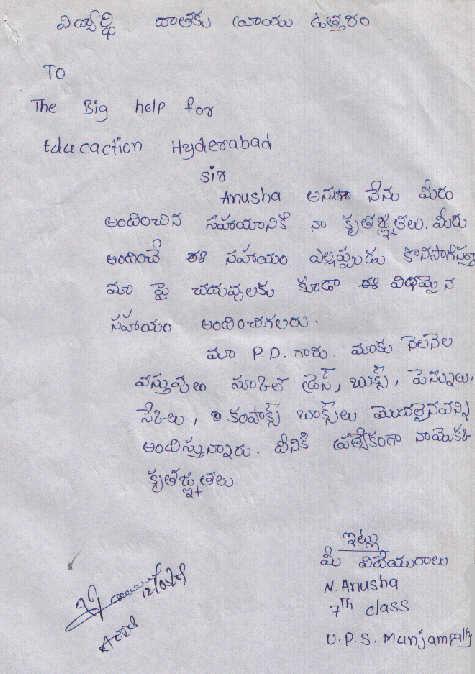 విద్యార్థి దాతకు వ్రాయు ఉత్తరం
To
The Big help for
Educaction Hyderabad
sir
Anusha అనగా నేను మీరు
అందించిన సహాయానికి నా కృతజ్ఞతలు. మీరు
అందించే ఈ సహాయం ఎల్లప్పుడు కొనసాగిస్తూ
మా పై చదువులకు కూడా ఈ విధమైన
సహాయం అందించగలరు.
మా P.D. గారు. మాకు నెలనెల
వస్తువులు స్కూల్ డ్రెస్, బుక్స్, పెన్నులు,
కంపాక్స్ బాక్స్‌లు మొదలైనవన్ని
అందిస్తున్నారు. దీనికి ప్రత్యేకంగా నాయొక్క
కృతజ్ఞతలు
ఇట్లు
మీ విదేయురాలు
N. Anusha
7th class
U.P.S. Munjampally